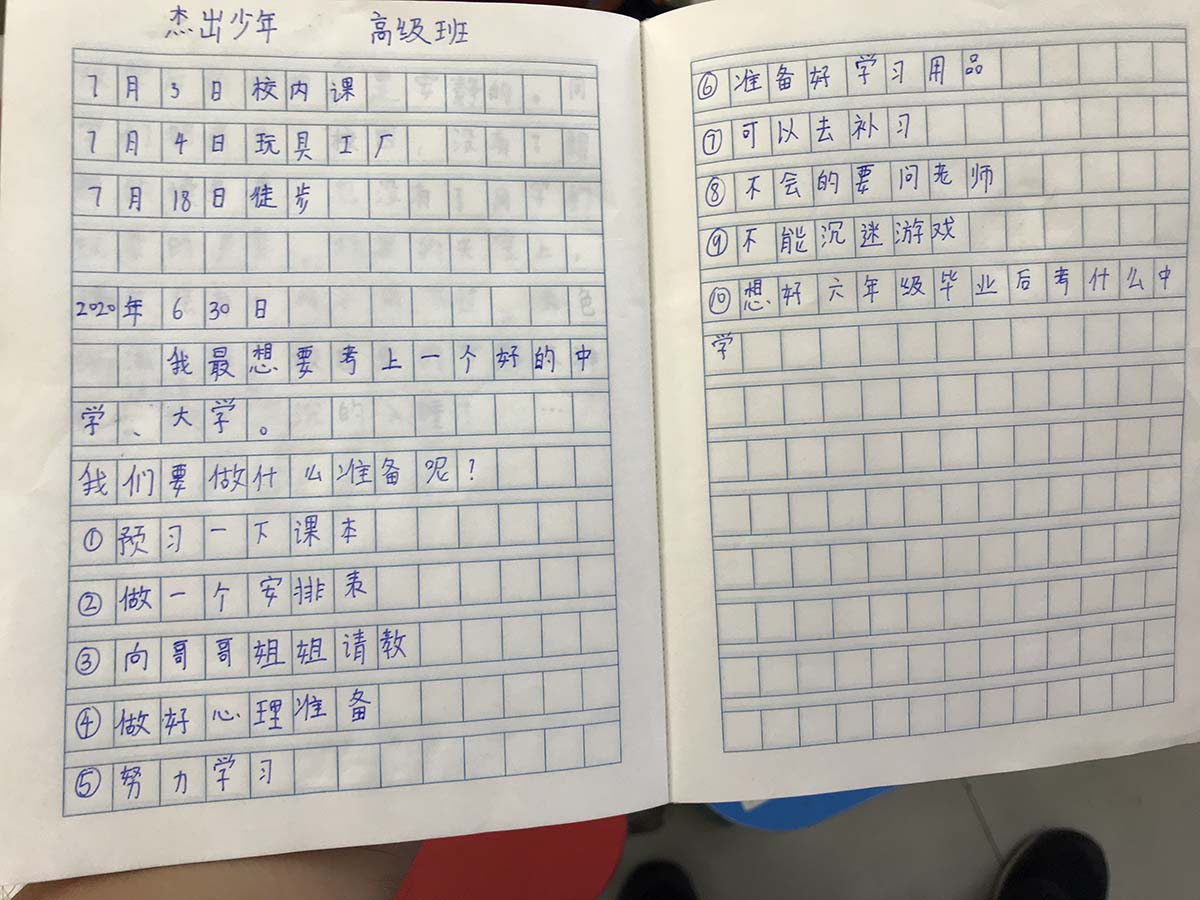 杰出少年 高级班
7月3日校内课
7月4日玩具工厂
7月18日徒步
2020年6 30日
我最想要考上一个好的中
学、大学。
我们要做什么准备呢?
①预习一下课本
②做一个安排表
③向哥哥姐姐请教
④做好心理准备
⑤努力学习
⑥准备好学习用品
⑦可以去补习
⑧不会的要问老师
⑨不能沉迷游戏
⑩想好六年级毕业后考什么中
学